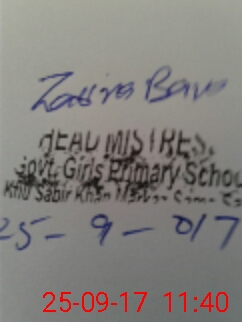 Zatira Bano
HEAD MISTRES.
Govt. Girls Primary School
Khu Sabir Khan
25-9-017
25-09-17 11:40